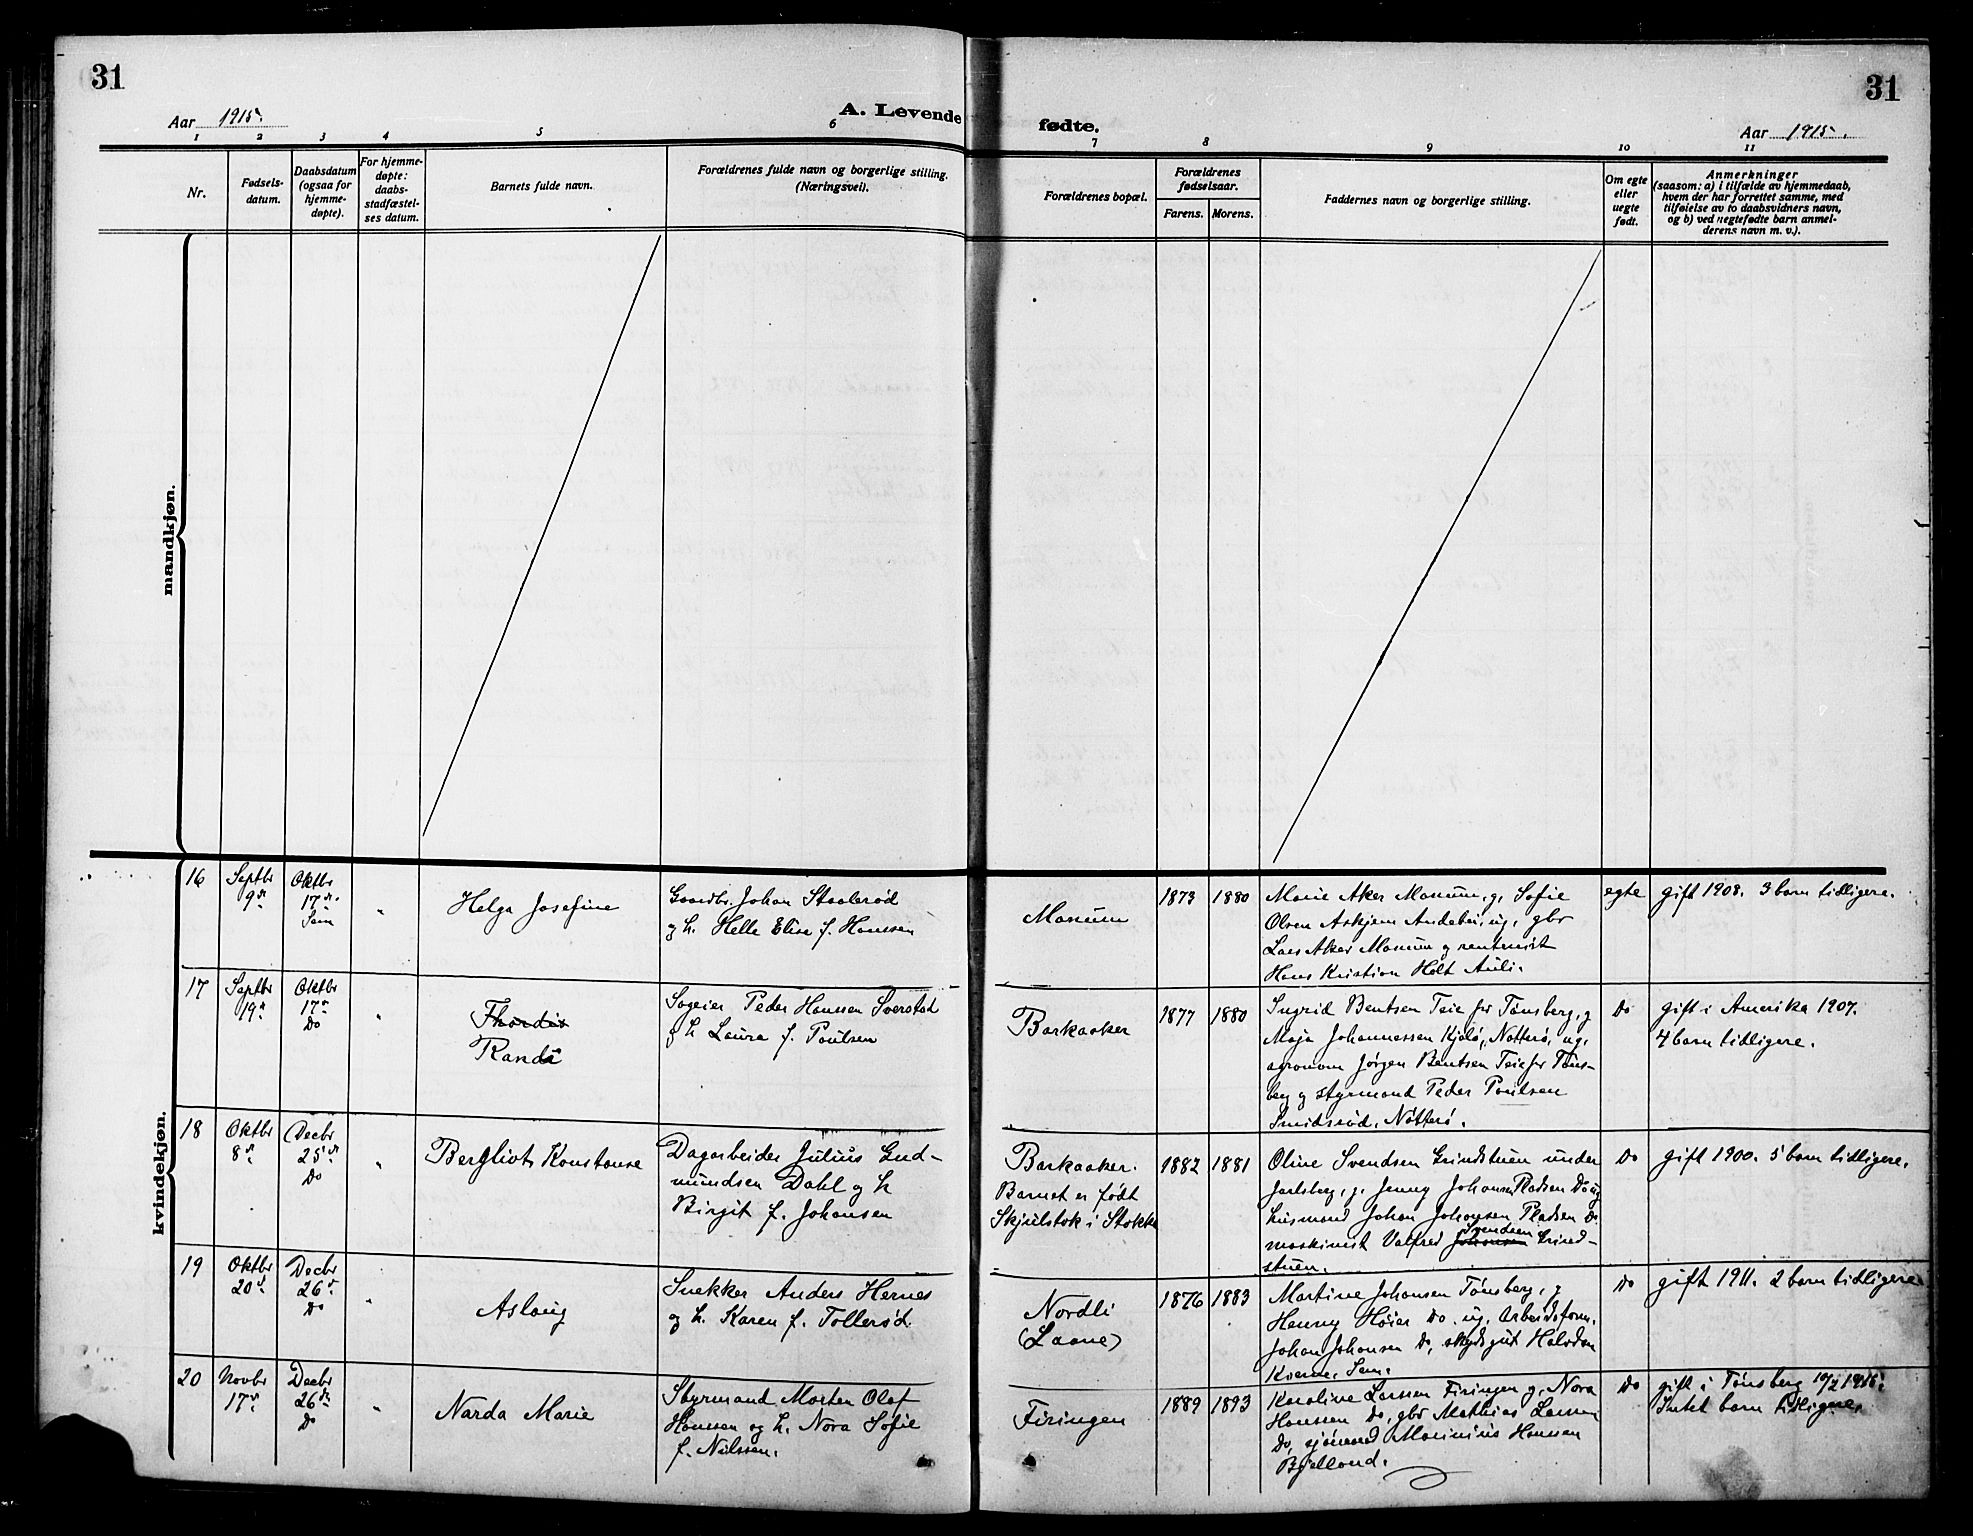 31
31
Aar 1915.
A. Levende fødte.
Aar 1915.
1 2 3 4 5 6 7 8 9 10 11
Nr.
Fødsels-
datum.
Daabsdatum
(ogsaa for
hjemme-
døpte).
For hjemme-
døpte:
daabs-
stadfæstel-
ses datum.
Barnets fulde navn.
Forældrenes fulde navn og borgerlige stilling.
(Næringsvei).
Forældrenes bopæl.
Forældrenes
fødselsaar.
Farens. Morens.
Faddernes navn og borgerlige stilling.
Om egte
eller
uegte
født.
Anmerkninger
(saasom: a) i tilfælde av hjemmedaab,
hvem der har forrettet samme, med
tilføielse av to daabsvidners navn,
og b) ved uegtefødte barn anmel-
derens navn m. v.).
mandkjøn.
kvindekjøn.
16
Septbr
9de
Oktbr
17de
Sem
"
Helga Josefine
Gaardbr. Johan Staalerød
og h. Helle Elise f. Hanssen
Manum
1873
1880
Marie Aker Manum, g, Sofie
Olsen Askjem Andebu, ug, gbr
Lars Aker Manum og rentenist
Hans Kristian Holt Auli.
egte
gift 1908. 3 barn tidligere.
17
Septbr
19de
Oktbr
17de
Do
"
Thordis
Randi
Sageier Peder Hanssen Sverstad
g h Laura f. Poulsen
Barkaaker
1877
1880
Ingrid Bentsen Teie pr Tønsberg, g
Maja Johannessen Kjølø, Nøtterø, ug,
agronom Jørgen Bentsen Teie pr Tøns-
berg g styrmand Peder Poulsen
Smidsrød, Nøtterø.
Do
gift i Amerika 1907.
4 barn tidligere.
18
Oktbr
8de
Decbr
25de
Do
"
Bergliot Konstanse
Dagarbeider Julius Gud-
mundsen Dahl og h
Birgit f. Johansen
Barkaaker.
Barnet er født
Skjulstok i Stokke
1882
1881
Oline Svendsen Grindstuen under
Jarlsberg, g, Jenny Johansen Pladsen Do ug
husmand Johan Johansen Pladsen Do
maskinist Valfred Johansen Svendsen Grind-
stuen.
Do
gift 1900. 5 barn tidligere.
19
Oktbr
20de
Decbr
26de
Do
"
Aslaug
Snekker Anders Hernes
og h. Karen f. Tollerød.
Nordli
(Laane)
1876
1883
Martine Johansen Tønsberg, g
Henny Høier Do. ug. Arbeidsform.
Johan Johansen Do, skydsgut Halvdan
Kverne, Sem.
Do
gift 1911. 2 barn tidligere
20
Novbr
17de
Decbr
26de
Do
"
Narda Marie
Styrmand Morten Olaf
Hansen og h. Nora Sofie
f. Nilssen.
Firingen
1889
1893
Karoline Larssen Firingen g, Nora
Hanssen Do, gbr Mathias Larssen
Do, sjømand Marinius Hansen
Bjelland.
Do
gift i Tønsberg 1915.
Intet barn tidligere.